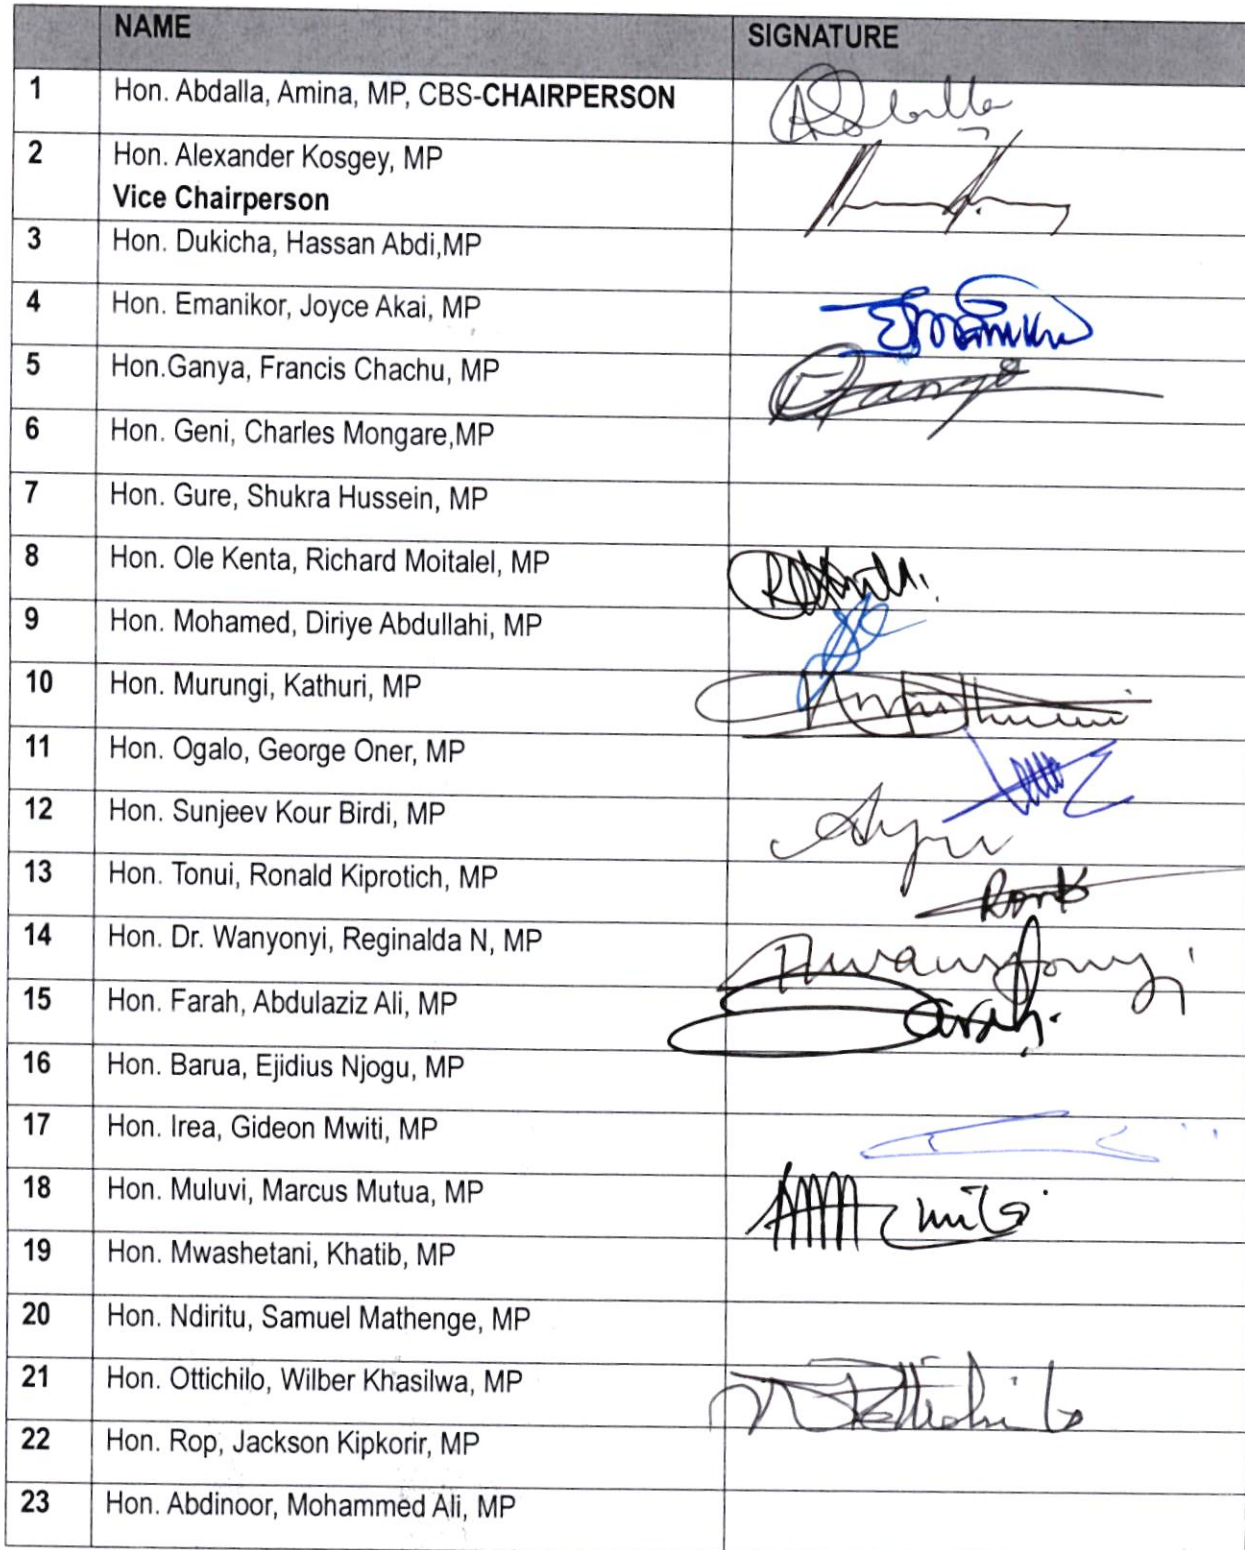 NAME SIGNATURE
1 Hon. Abdalla, Amina, MP, CBS-CHAIRPERSON
2 Hon. Alexander Kosgey, MP
Vice Chairperson
3 Hon. Dukicha, Hassan Abdi,MP
4 Hon. Emanikor, Joyce Akai, MP
5 Hon.Ganya, Francis Chachu, MP
6 Hon. Geni, Charles Mongare,MP
7 Hon. Gure, Shukra Hussein, MP
8 Hon. Ole Kenta, Richard Moitalel, MP
9 Hon. Mohamed, Diriye Abdullahi, MP
10 Hon. Murungi, Kathuri, MP
11 Hon. Ogalo, George Oner, MP
12 Hon. Sunjeev Kour Birdi, MP
13 Hon. Tonui, Ronald Kiprotich, MP
14 Hon. Dr. Wanyonyi, Reginalda N, MP
15 Hon. Farah, Abdulaziz Ali, MP
16 Hon. Barua, Ejidius Njogu, MP
17 Hon. Irea, Gideon Mwiti, MP
18 Hon. Muluvi, Marcus Mutua, MP
19 Hon. Mwashetani, Khatib, MP
20 Hon. Ndiritu, Samuel Mathenge, MP
21 Hon. Ottichilo, Wilber Khasilwa, MP
22 Hon. Rop, Jackson Kipkorir, MP
23 Hon. Abdinoor, Mohammed Ali, MP